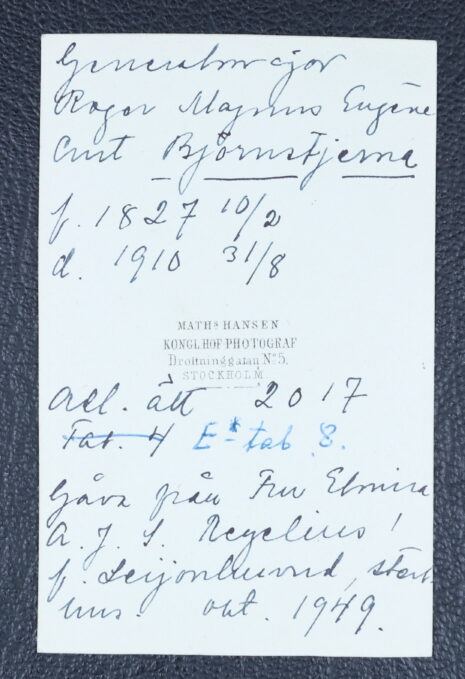 Generalmajor
Roger Magnus Eugène
Curt Björnstjerna
f. 1827 10/2
d. 1910 31/8
MATHs HANSEN
KONGL HOF PHOTOGRAF
Drottninggatan No 5.
STOCKHOLM
Adl. ätt 2017
Tab. 4 E* tab 8.
Gåva från Fru Elmira
A. J. S. Regelius!
f. Leijonhuvud,
hus. okt. 1949.